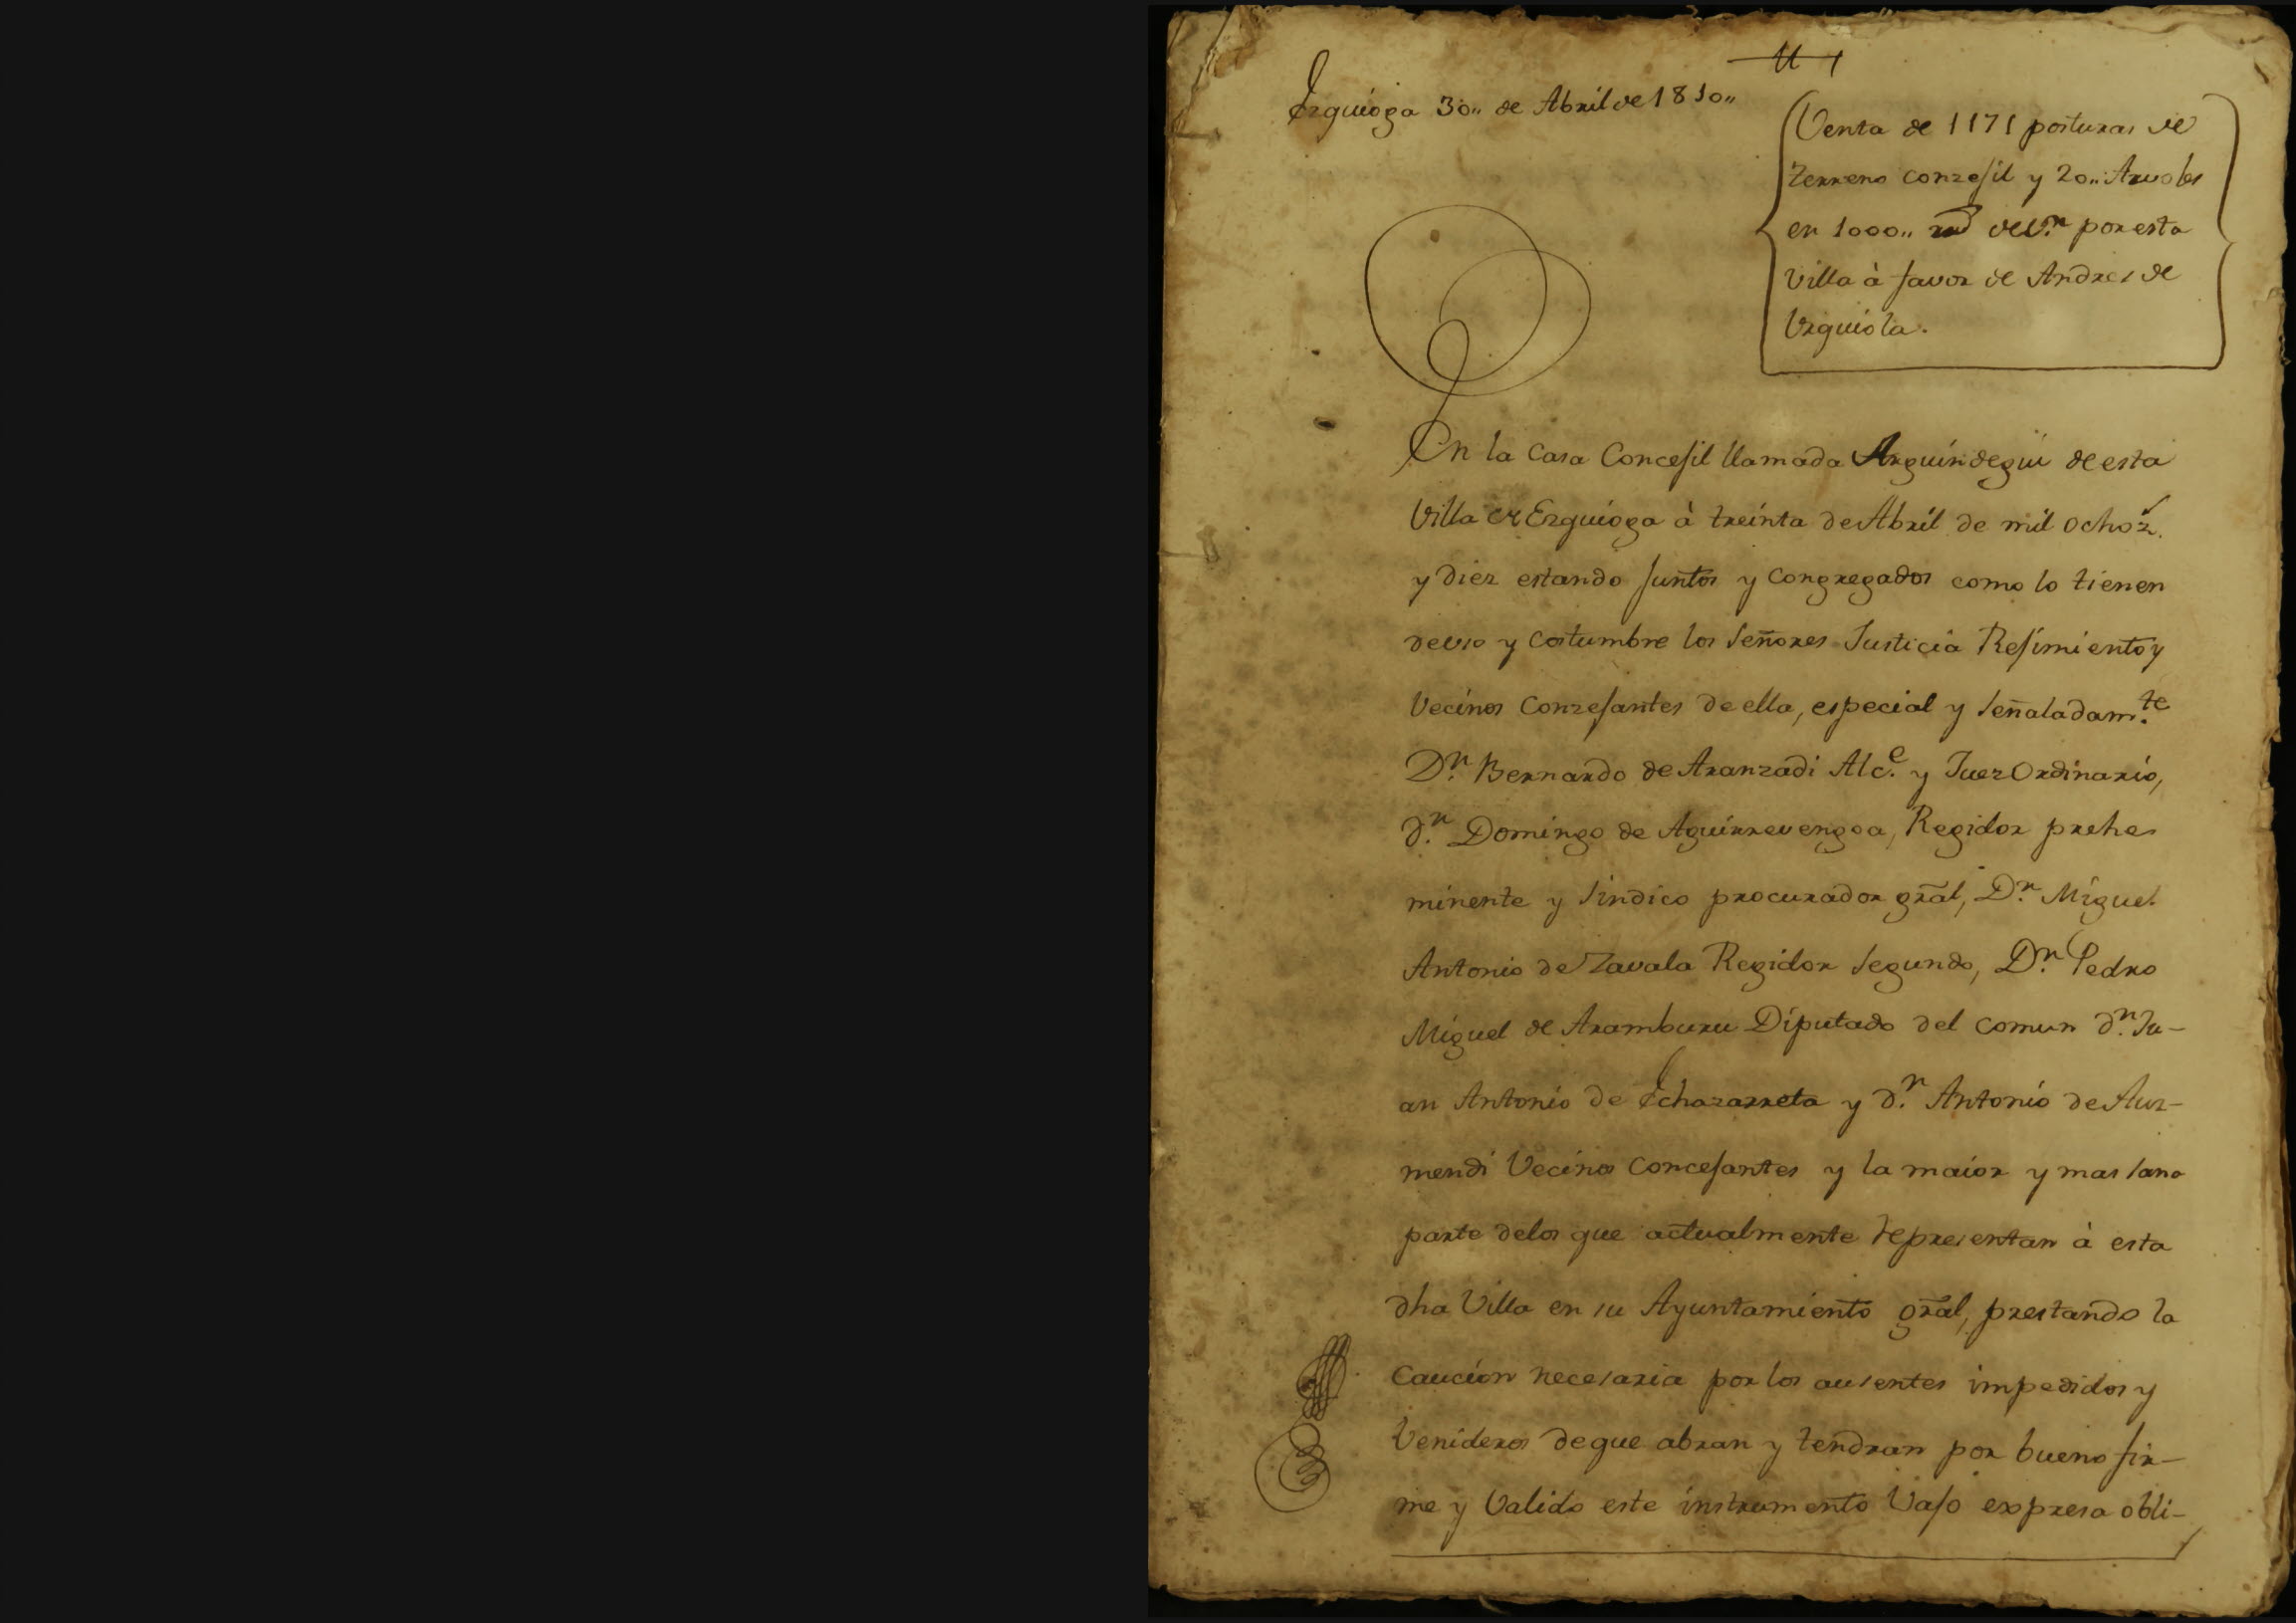 Ezquioga 30,, de Abril de 1810,,
Venta de 1171 posturas de
terreno conzejil y 20,, Arvoles
en 1000,, rs. de v.n por esta
Villa à favor de Andres de
Urquiola.
En la Casa Concejil llamada Arguindegui de esta
Villa de Ezquioga à treinta de Abril de mil ochoz.
y diez estando juntos y congregados como lo tienen
de uso y costumbre los Señores Justicia Rejimiento y
Vecinos Conzejantes de ella, especial y señaladam.te
D.n Bernardo de Aranzadi Alc.e y Juez Ordinario,
d.n Domingo de Aguirrevengoa, Regidor prehe
minente y Sindico procurador gral, D.n Miguel
Antonio de Zavala Regidor Segundo, D.n Pedro
Miguel de Aramburu Diputado del comun d.n Ju-
an Antonio de Echazarreta y d.n Antonio de Aur-
mendi Vecinos Concejantes y la maior y mas sana
parte delos que actualmente representan à esta
dha Villa en su Ayuntamiento gral, prestando la
Caucion necesaria por los ausentes impedidos y
Venideros de que abran y tendran por bueno fir-
me y Valido este instrumento Vajo expresa obli-